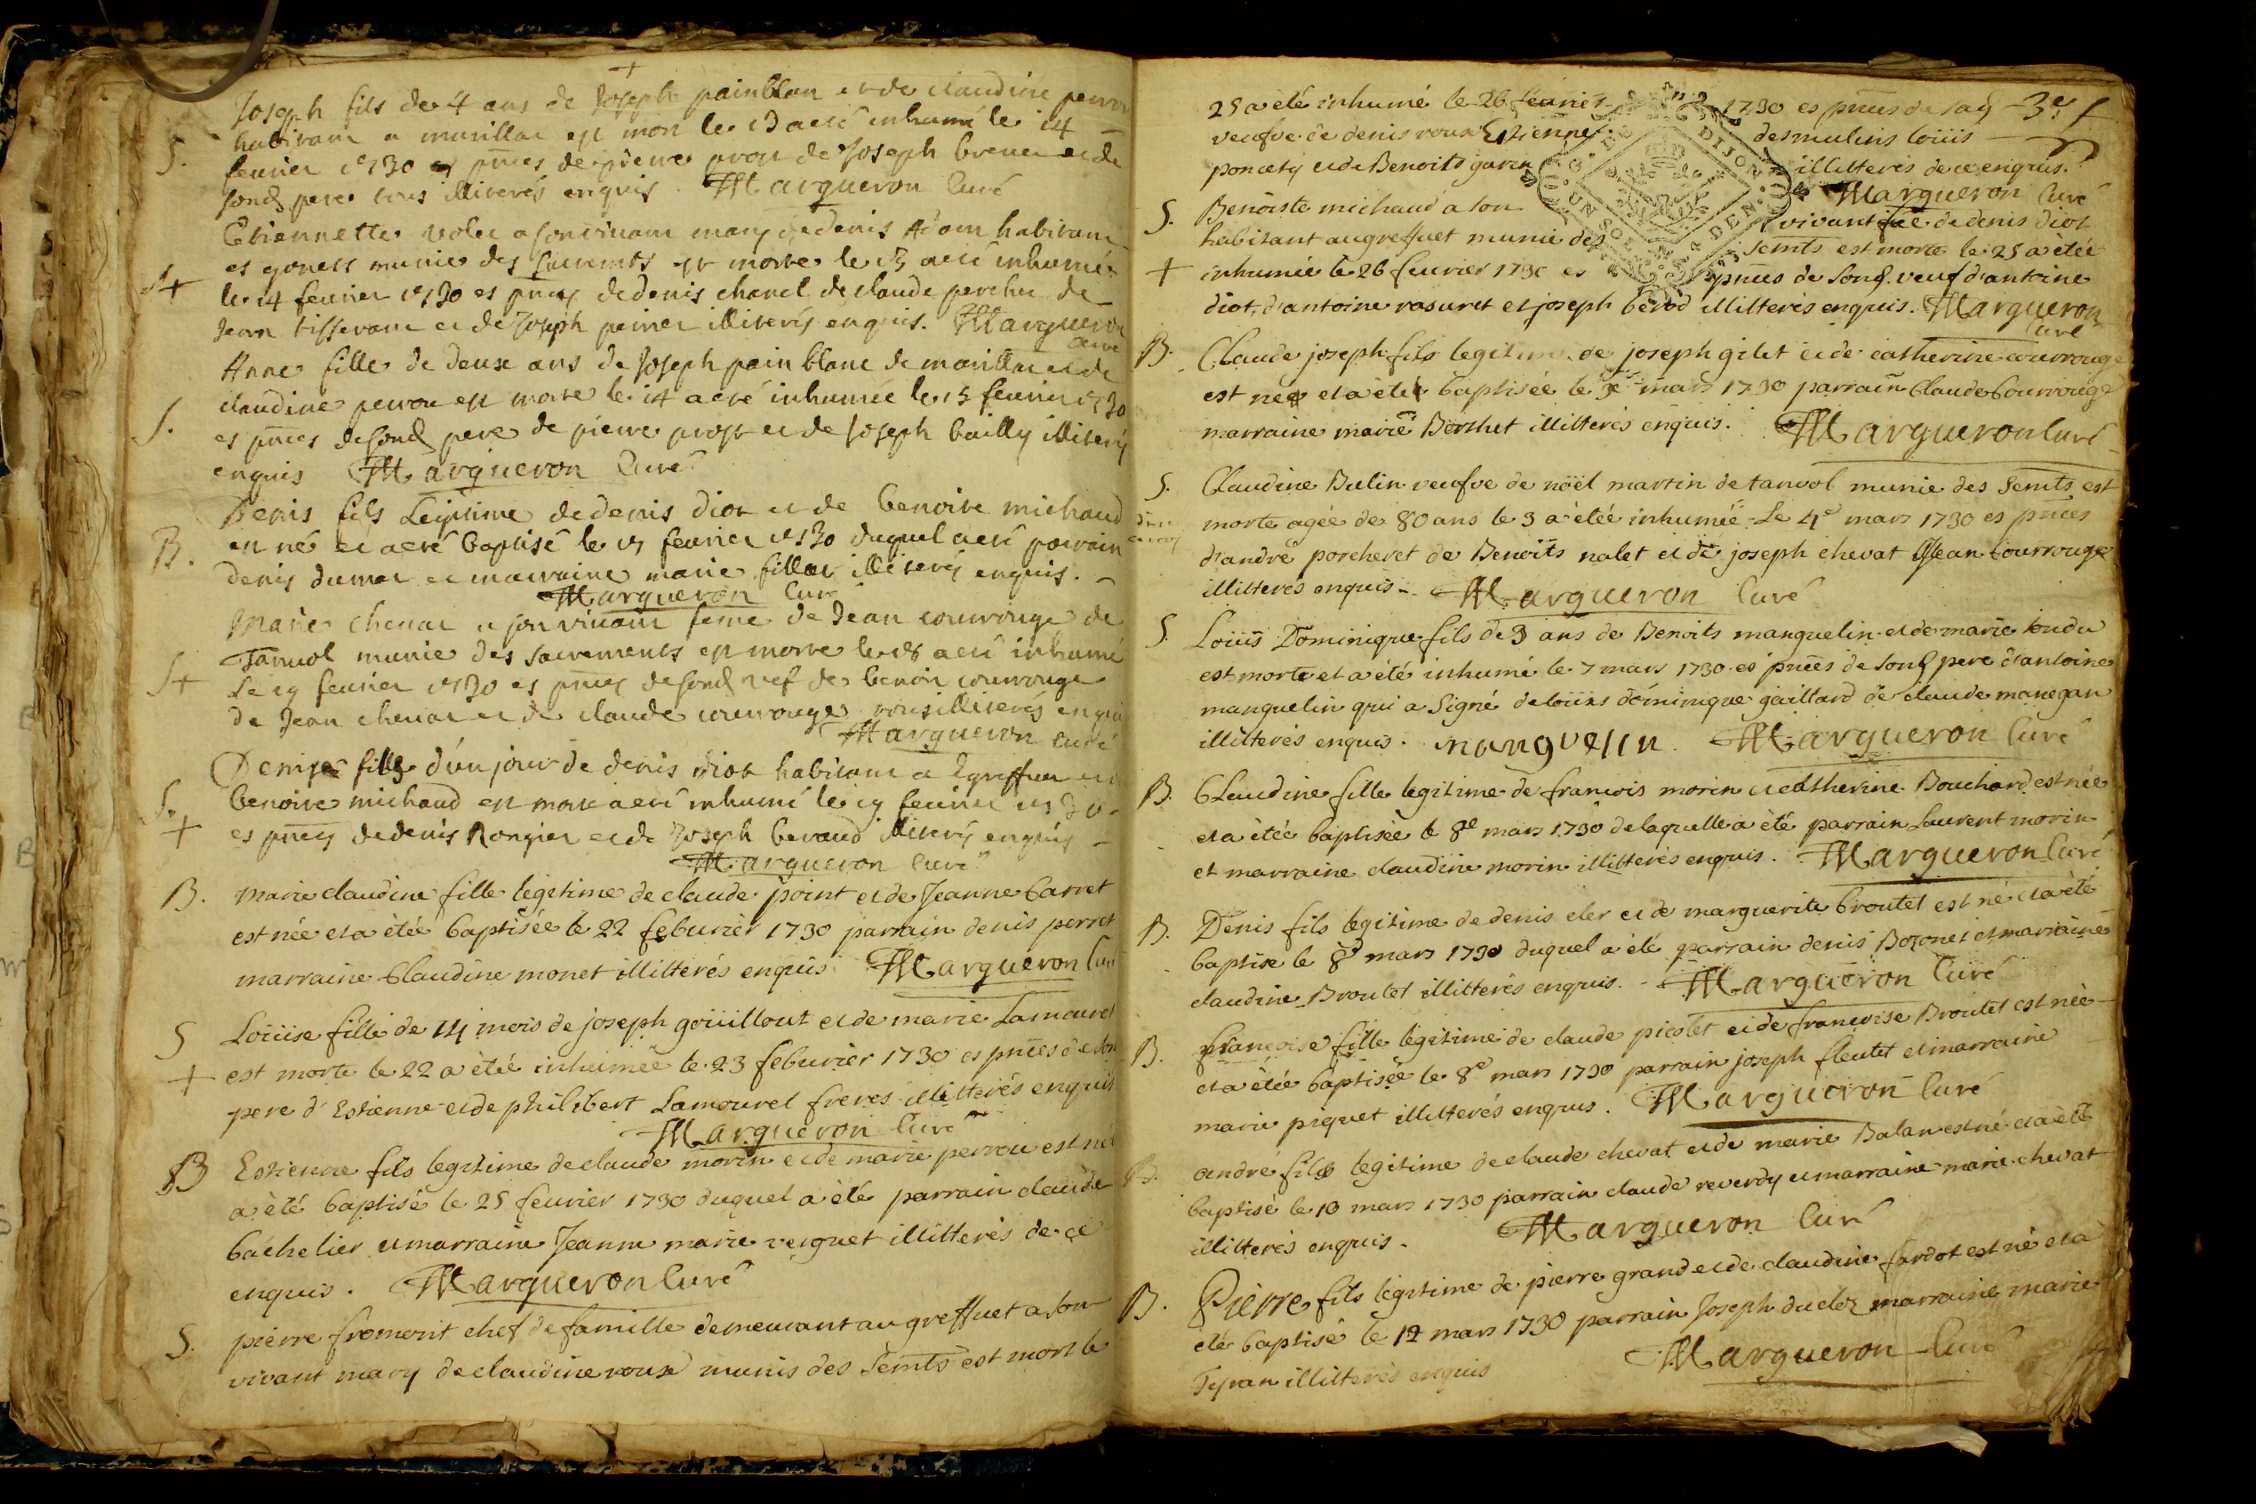 Joseph fils de 4 ans de Joseph painblan et de claudine perrou
S. habitant a marillat est mort le 13 a eté inhumé le 14
feurier 1730 es pnces de pierre prost de Joseph brenet et de
sond pere tous illiterés enquis. Margueron Curé
Etiennette volet a son vivant mary de denis Adam habitant
es gonets munie des sacremts est morte le 13 a eté inhumée
S+ le 14 feurier 1730 es pnces de denis chanel de claude percher de
Jean tisserant et de Joseph perrier illiterés enquis. Margueron
Curé
Anne fille de deux ans de Joseph pain blanc de marillat et de
claudine perrou est morte le 14 a eté inhumée le 15 feurier 1730
S. es pnces de sond pere de pierre prost et de Joseph bailly illiterés
enquis Margueron Curé
Denis fils Legitime de denis diot et de benoite michaud
B. est né et a eté baptisé le 17 feurier 1730 duquel a eté parrain
denis dumat et marraine marie fillat illiterés enquis.
Margueron Curé
Marie chevat a son vivant feme de Jean courrouge de
Tanvol munie des sacrements est morte le 18 a eté inhumé
S+ Le 19 feurier 1730 es pnces de sond vef de benoit courrouge
de Jean chevat et de claude courrouge tous illiterés enquis
Margueron curé
Denise fille d'un jour de denis diot habitant a Egreffuet et de
S. benoite michaud est morte a eté inhumé le 19 feurier 1730.
+ es pnces de denis Rongier et de Joseph beraud illiterés enquis
Margueron Curé
B. marie claudine fille legitime de claude point et de Jeanne Carret
est née et a étée baptisée le 22 feburier 1730 parrain denis perret
marraine Claudine monet illitterés enquis Margueron Curé
S Loüise fille de 14 mois de joseph goüillout et de marie Lamouret
+ est morte le 22 a étée inhumée le 23 feburier 1730 es pnces de son
pere d'Estienne et de philibert Lamouret freres illitterés enquis
Margueron Curé
B Estienne fils legitime de claude morin et de marie perrou est né
a été baptisé le 25 feurier 1730 duquel a été parrain claude
bachelier et marraine Jeanne marie verguet illitterés de ce
enquis. Margueron Curé
S. pierre froment chef de famille demeurant au greffuet a son
vivant mary de claudine roux munis des Semts est mort le
25 a été inhumé le 26 feurier 1730 es pnces de lad 3e f
veufve de denis roux Estienne des mulins loüis
poncety et de Benoits garin illitterés de ce enquis.
Margueron Curé
S. Benoiste michaud a son vivant fae de denis diot
habitant au greffuet munie des Semts est morte le 25 a étée
+ inhumée le 26 feurier 1730 es pnces de sond veuf d'antoine
diot, d'antoine rasuret et joseph berod illitterés enquis. Margueron
Curé
B. Claude joseph fils legitime de joseph gilet et de catherine courrouge
est né et a été baptisée le 3e mars 1730 parrain Claude Courrouge
marraine marie Berthet illitterés enquis. Margueron Curé
S. Claudine Bulin veufve de noël martin de tanvol munie des Semts est
morte agée de 80 ans le 3 a étée inhumée Le 4e mars 1730 es pnces
d'andré porcheret de Benoits nalet et de joseph chevat Jean Courrouge
illitterés enquis. Margueron Curé
S. Loüis Dominique fils de 3 ans de Benoits manguelin et de marie tondu
est morte et a été inhumé le 7 mars 1730 es pnces de sond pere d'antoine
manguelin qui a Signé de loüis dominique gaillard de claude manegan
illitterés enquis. manguelin. Margueron Curé
B. Claudine fille legitime de francois morin et catherine Bouchard est née
et a étée baptisée le 8e mars 1730 de laquelle a été parrain Laurent morin
et marraine claudine morin illitterés enquis. Margueron Curé
B. Denis fils legitime de denis cler et de marguerite broutet est né et a été
baptisé le 8e mars 1730 duquel a été parrain denis Bozonet et marraine
claudine Broutet illitterés enquis. Margueron Curé
B. françoise fille legitime de claude picolet et de françoise Broutet est née
et a étée baptisée le 8e mars 1730 parrain joseph fleutet et marraine
marie piquet illitterés enquis. Margueron Curé
B. andré fils legitime de claude chevat et de marie Balan est né et a été
baptisé le 10 mars 1730 parrain claude reverdy et marraine marie chevat
illitterés enquis. Margueron Curé
B. Pierre fils legitime de pierre grand et de claudine fardot est né et a
eté baptisé le 12 mars 1730 parrain Joseph duclez marraine marie
Tipan illitterés enquis Margueron Curé
G. DE DIJON
UN SOL 4 DEN.